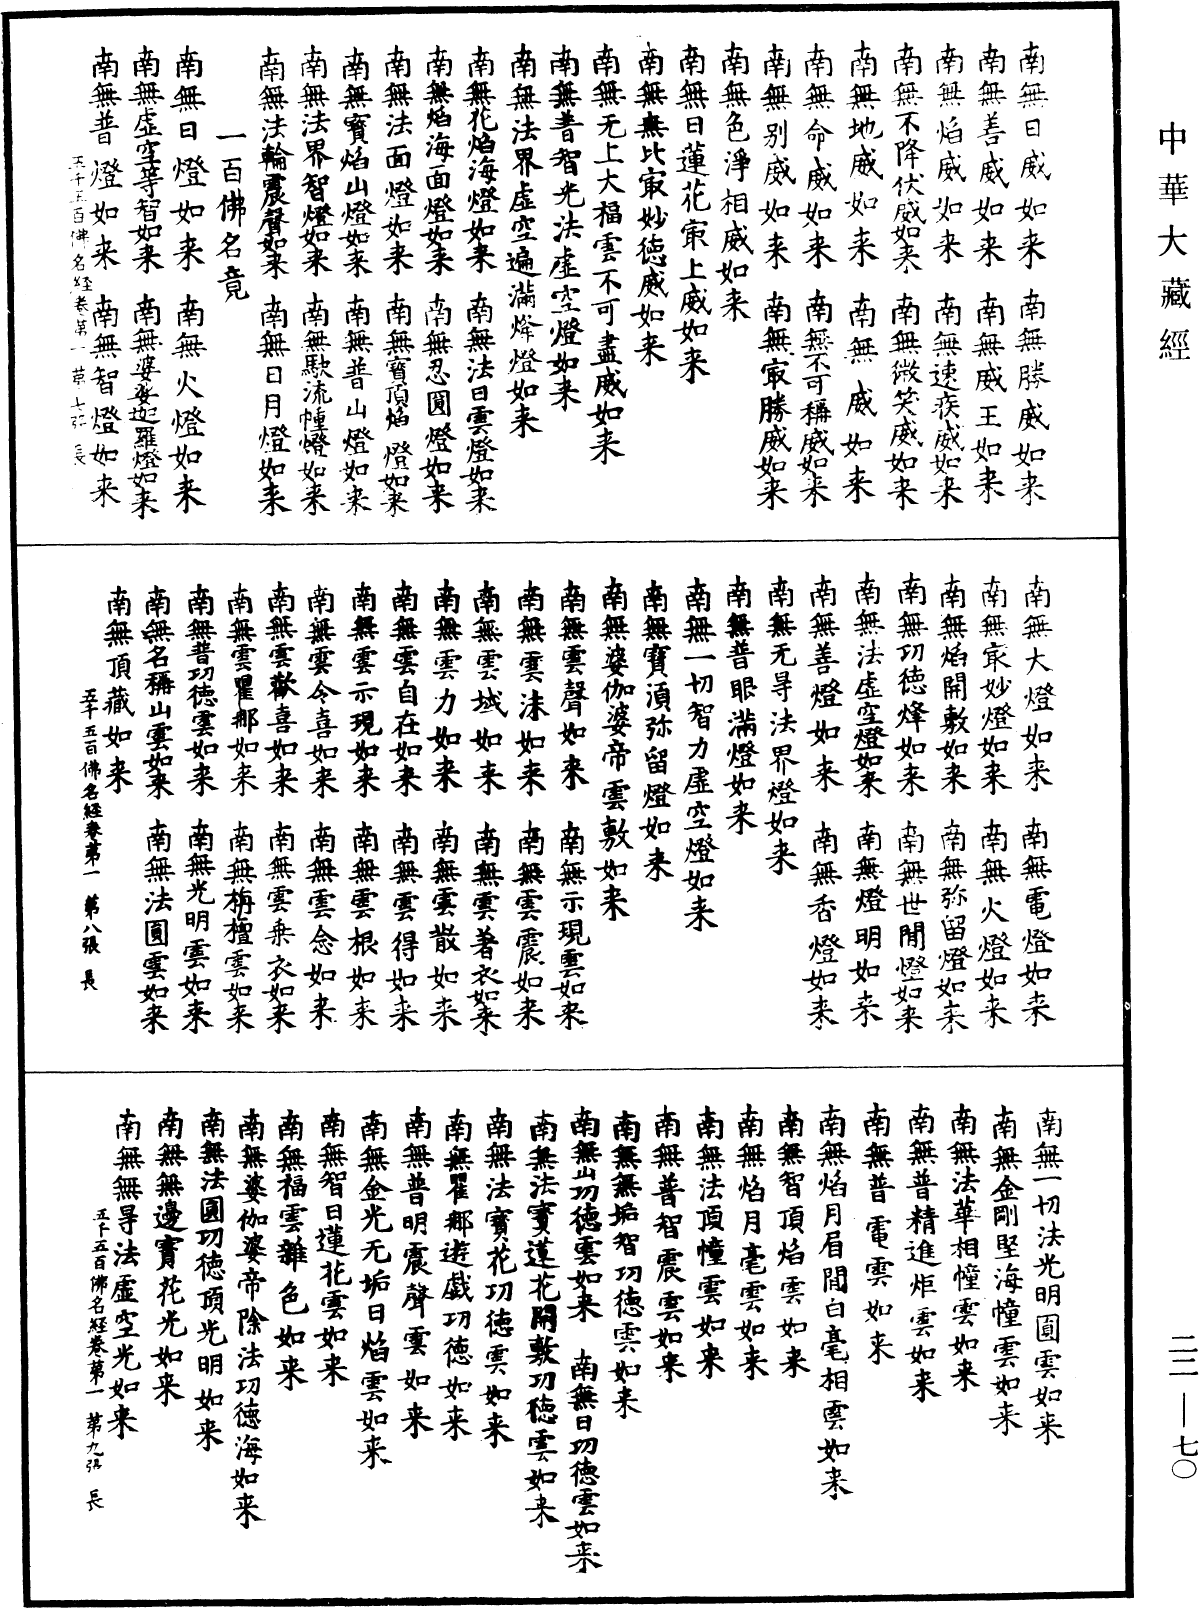 中華大藏經
南無日威如来　南無勝威如来
南無善威如来　南無威王如来
南無焰威如来　南無速疾威如来
南無不降伏威如来　南無微笑威如来
南無地威如来　南無威如来
南無命威如来　南無不可稱威如来
南無别威如来　南無㝡勝威如来
南無色淨相威如来
南無日蓮花㝡上威如来
南無無比㝡妙徳威如来
南無无上大福雲不可盡威如来
南無普智光法虚空燈如来
南無法界虚空遍滿烽燈如来
南無花焰海燈如来　南無法日雲燈如来
南無焰海面燈如来　南無忍圓燈如来
南無法面燈如来　南無寶頂焰燈如来
南無寶焰山燈如来　南無普山燈如来
南無法界智燈如来　南無駛流幢燈如来
南無法輪震聲如来　南無日月燈如来
一百佛名竟
南無日燈如来　南無火燈如来
南無虚空等智如来　南無婆娑迦羅燈如来
南無普燈如来　南無智燈如来
五千五百佛名経卷第一　草　七張　長
南無大燈如来　南無電燈如来
南無㝡妙燈如来　南無火燈如来
南無焰開敷如来　南無弥留燈如来
南無功徳烽如来　南無世間燈如来
南無法虚空燈如来　南無燈明如来
南無善燈如来　南無香燈如来
南無无㝵法界燈如来
南無普眼滿燈如来
南無一切智力虚空燈如来
南無寶須弥留燈如来
南無婆伽婆帝雲敷如来
南無雲聲如来　南無示現雲如来
南無雲沫如来　南無雲震如来
南無雲域如来　南無雲著衣如来
南無雲力如来　南無雲散如来
南無雲自在如来　南無雲得如来
南無雲示現如来　南無雲根如来
南無雲令喜如来　南無雲念如来
南無雲歡喜如来　南無雲乗衣如来
南無雲瞿那如来　南無栴檀雲如来
南無普功徳雲如来　南無光明雲如来
南無名稱山雲如来　南無法圓雲如来
南無頂藏如来
五千五百佛名経卷第一　第八張　長
南無一切法光明圓雲如来
南無金剛堅海幢雲如来
南無法華相幢雲如来
南無普精進炬雲如来
南無普電雲如来
南無焰月眉間白毫相雲如来
南無智頂焰雲如来
南無焰月毫雲如来
南無法頂幢雲如来
南無普智震雲如来
南無無垢智功徳雲如来
南無山功徳雲如来　南無日功徳雲如来
南無法寶蓮花開敷功徳雲如来
南無法寶花功徳雲如来
南無瞿那遊戯功徳如来
南無普明震聲雲如来
南無金光无垢日焰雲如来
南無智日蓮花雲如来
南無福雲雜色如来
南無婆伽婆帝除法功徳海如来
南無法圓功徳頂光明如来
南無無邊寶花光如来
南無無㝵法虚空光如来
五千五百佛名経卷第一　第九張　長
二二—七〇